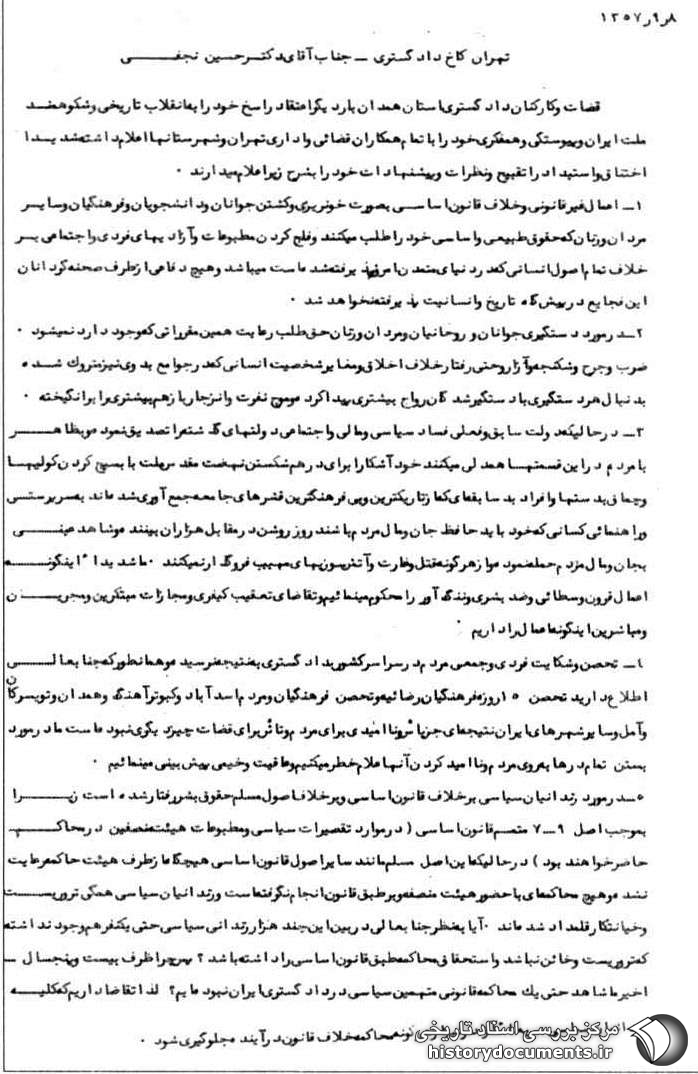 ۱۳۵۷ر۹ر۸
تهران کاخ دادگستری ـ جناب آقای دکتر حسین نجفی
قضات و کارکنان دادگستری استان همدان بار دیگر اعتقاد راسخ خود را به انقلاب تاریخی و شکوهمند
ملت ایران و پیوستگی و همفکری خود را با تمام همکاران قضائی و اداری تهران و شهرستانها اعلام داشته شدیدا
اختناق و استبداد را تقبیح و نظرات و پیشنهادات خود را بشرح زیر اعلام میدارند ۰
۱ـ اعمال غیرقانونی و خلاف قانون اساسی بصورت خونریزی و کشتن جوانان و دانشجویان و فرهنگیان و سایر
مردان و زنان که حقوق طبیعی و اساسی خود را طلب میکنند و فلج کردن مطبوعات و آزادیهای فردی و اجتماعی بر
خلاف تمام اصول انسانی که در دنیای متمدن امروز پذیرفته شده است میباشد و هیچ دفاعی از طرف صحنه گردانان
این فجایع در پیشگاه تاریخ و انسانیت پذیرفته نخواهد شد ۰
۲ـ در مورد دستگیری جوانان و روحانیان و مردان و زنان حق طلب رعایت همین مقرراتی که وجود دارد نمیشود ۰
ضرب و جرح و شکنجه و آزار و حتی رفتار خلاف اخلاق و مغایر شخصیت انسانی که در جوامع بدوی نیز متروک شده
بدنبال هر دستگیری با دستگیرشدگان رواج بیشتری پیدا کرده و موج نفرت و انزجار باز هم بیشتری را برانگیخته ۰
۳ـ در حالیکه دولت سابق و فعلی فساد سیاسی و مالی و اجتماعی دولتهای گذشته را تصدیق نموده و بظاهر
با مردم در این قسمتها همدلی میکنند خود آشکارا برای درهم شکستن نهضت مقدس ملت با بسیج کردن کولیها
و چماق بدستها و افراد بد سابقه ای که از تاریکترین و بی فرهنگترین قشرهای جامعه جمع آوری شده اند به سرپرستی
و راهنمائی کسانی که خود باید حافظ جان و مال مردم باشند روز روشن در مقابل هزاران بیننده و شاهد عینی
بجان و مال مردم حمله نموده و از هرگونه قتل و غارت و آتش سوزیهای مهیب فروگذار نمیکنند ۰ ما شدیدا" اینگونه
اعمال قرون وسطائی و ضد بشری و ننگ آور را محکوم مینمائیم و تقاضای تعقیب کیفری و مجازات مبتکرین و مجریان
و مباشرین اینگونه اعمال را داریم ۰
۴ـ تحصن و شکایت فردی و جمعی مردم در سراسر کشور بدادگستری به نتیجه نرسیده و همانطور که جنابعالی
اطلاع دارید تحصن ۱۵ روزه فرهنگیان رضائیه و تحصن فرهنگیان و مردم اسدآباد و کبوترآهنگ و همدان و تویسرکان
و آمل و سایر شهرهای ایران نتیجه ای جز یأس و ناامیدی برای مردم و تأثر برای قضات چیز دیگری نبوده است ما در مورد
بستن تمام درها به روی مردم و ناامید کردن آنها اعلام خطر میکنیم و عاقبت وخیمی پیش بینی مینمائیم ۰
۵ـ در مورد زندانیان سیاسی برخلاف قانون اساسی و برخلاف اصول مسلم حقوق بشر رفتار شده است زیرا
بموجب اصل ۷۹ متمم قانون اساسی ( در موارد تقصیرات سیاسی و مطبوعات هیئت منصفین در محاکم
حاضر خواهند بود ) در حالیکه این اصل مسلم مانند سایر اصول قانون اساسی هیچگاه از طرف هیئت حاکمه رعایت
نشده و هیچ محاکمه ای با حضور هیئت منصفه و بر طبق قانون انجام نگرفته است و زندانیان سیاسی همگی تروریست
و خیانتکار قلمداد شده اند ۰ آیا به نظر جنابعالی در بین این چند هزار زندانی سیاسی حتی یکنفر هم وجود نداشته
که تروریست و خائن نباشد و استحقاق محاکمه طبق قانون اساسی را داشته باشد ؟ پس چرا ظرف بیست و پنجسال ـ
اخیر ما شاهد حتی یک محاکمه قانونی متهمین سیاسی در دادگستری ایران نبوده ایم؟ لذا تقاضا داریم که کلیه
محاکمه خلاف قانون درآیند جلوگیری شود ۰
مرکز بررسی اسناد تاریخی
historydocuments.ir